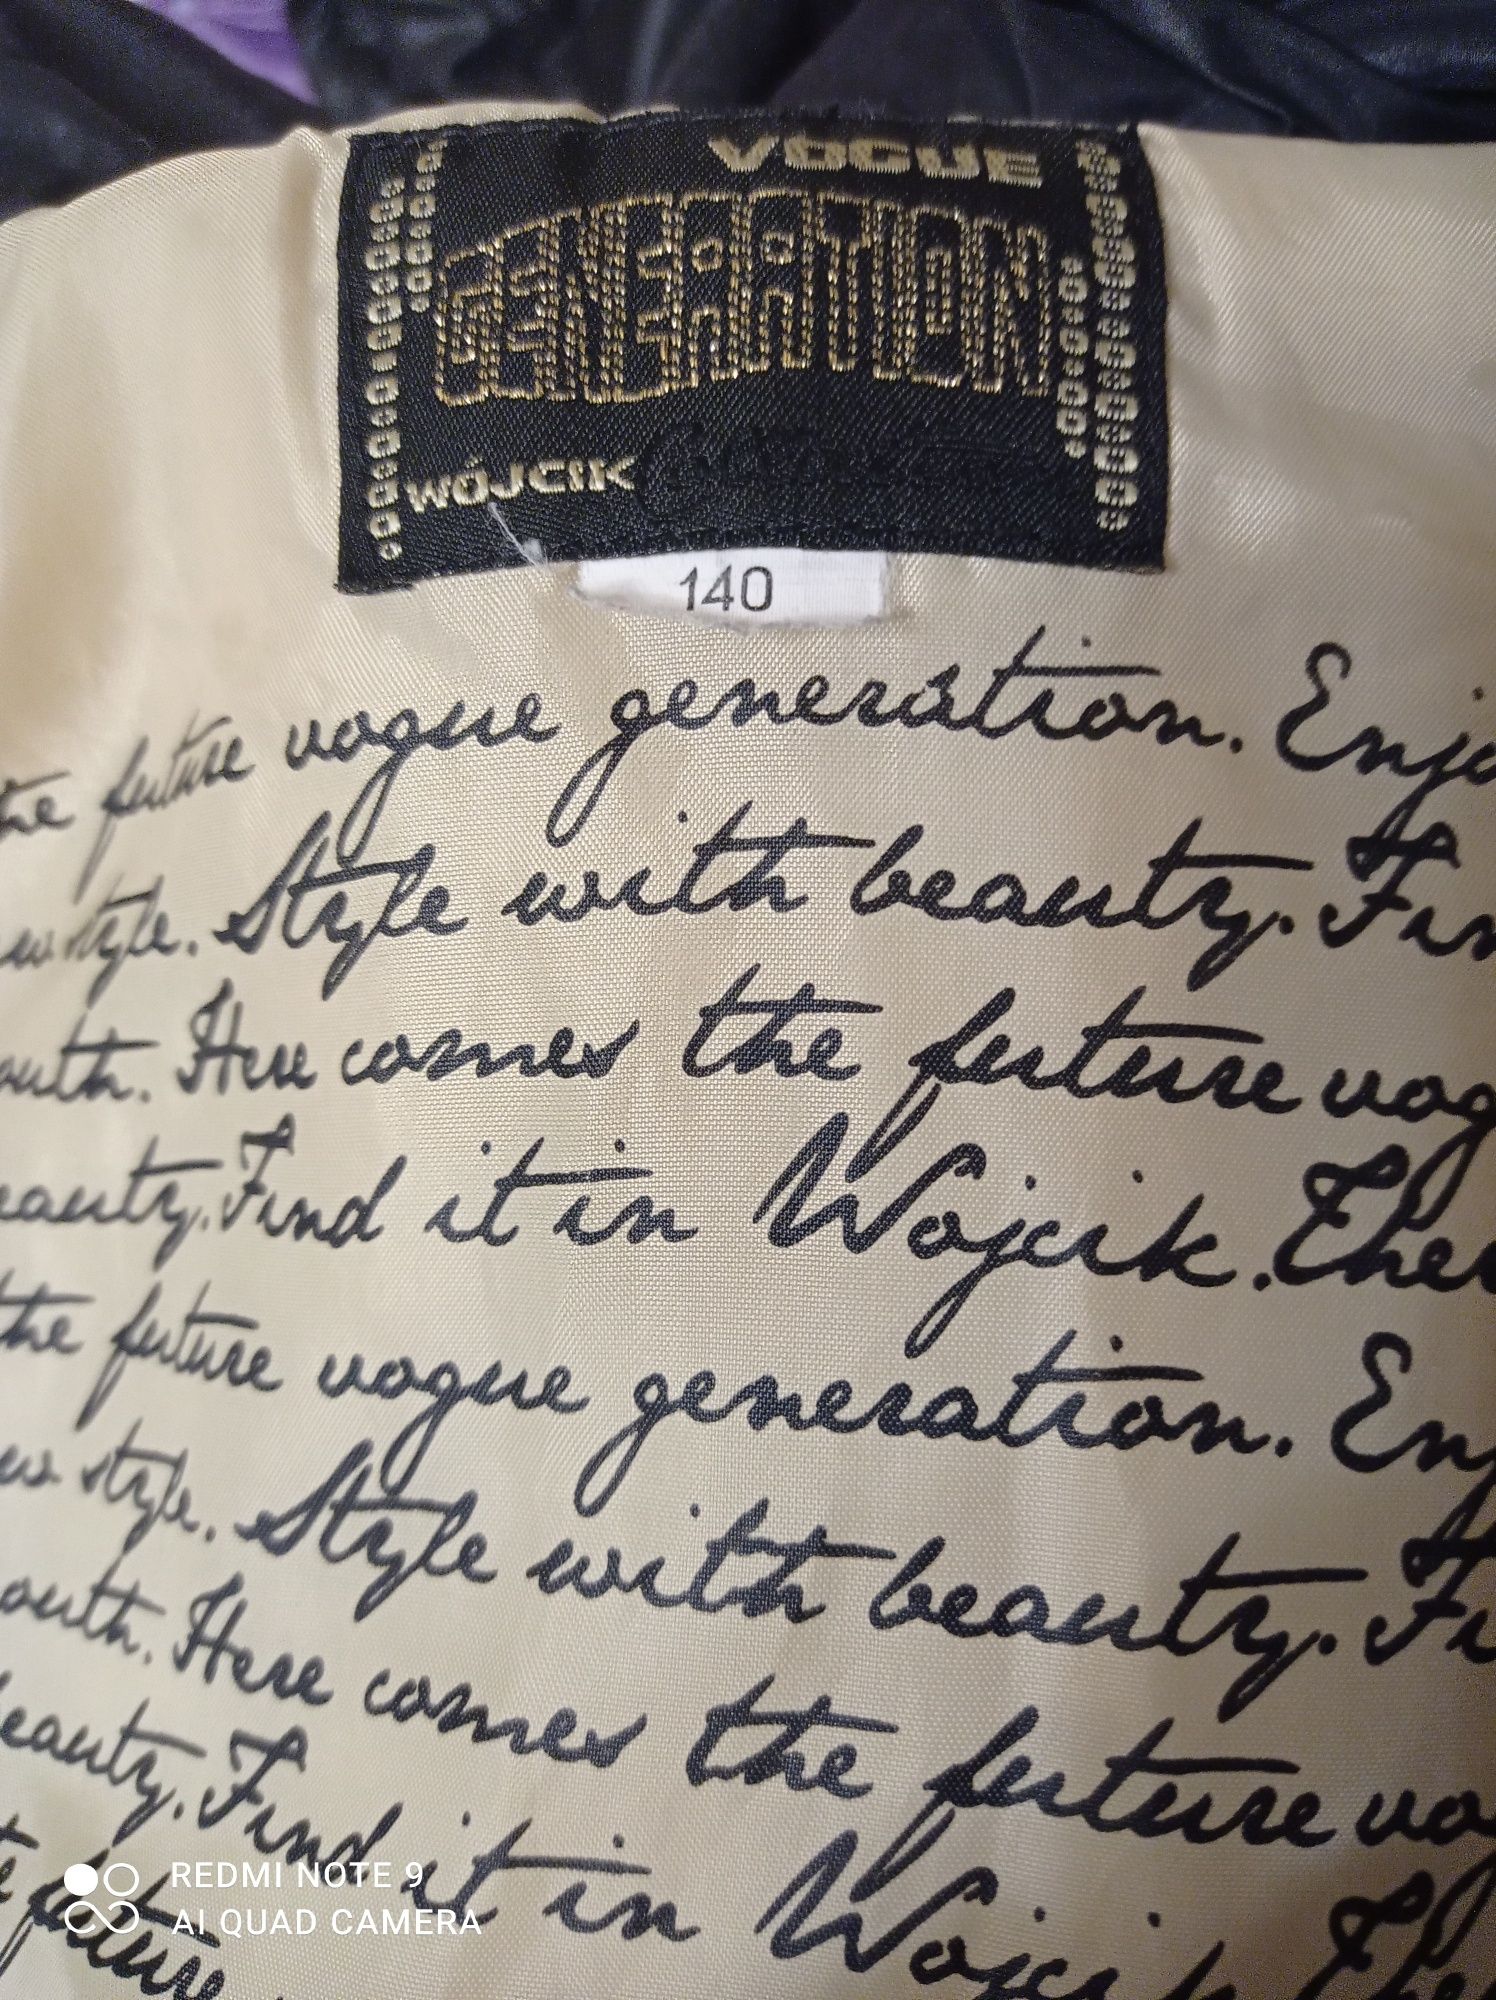 VOGUE
GENERATION
WÓJCIK
140
the future vogue generation. Enjo
ew style. Style with beauty. Fin
outh. Here comes the future vog
eauty. Find it in Wojcik. Ther
the future vogue generation. Enj
ew style. Style with beauty. Fi
outh. Here comes the future vog
beauty. Find it in Wojcik. The
future
REDMI NOTE 9
AI QUAD CAMERA